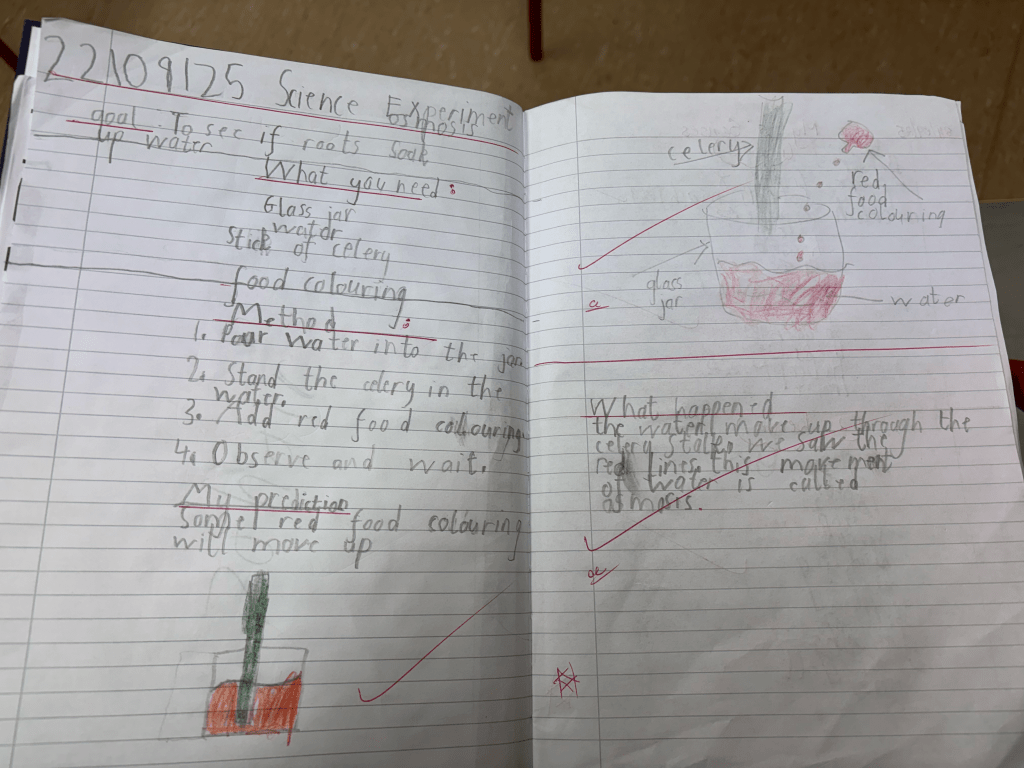 22/09/25 Science Experiment
goal To see if roots soak
up watre
What you need:
Glass jar
water
Stick of celery
food colouring
Method:
1. Pour water into the jar
2. Stand the celery in the
water.
3. Add red food colouring
4. Observe and wait.
My prediction
red food colouring
will move up
celery
red
food
colouring
glass
jar
water
What happened
the water move up through the
celery stalk, we saw the
red lines, this movement
of water is called
osmosis.